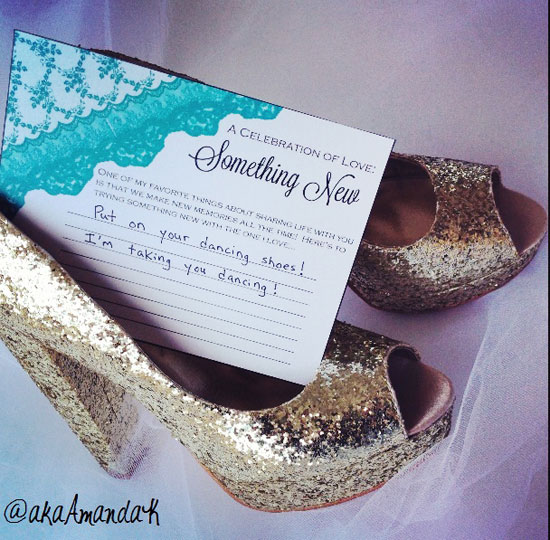 A CELEBRATION OF LOVE:
Something New
ONE OF MY FAVORITE THINGS ABOUT SHARING LIFE WITH YOU
IS THAT WE MAKE NEW MEMORIES ALL THE TIME! HERE'S TO
TRYING SOMETHING NEW WITH THE ONE I LOVE...
Put on your dancing shoes!
I'm taking you dancing!
@akaAmandaK